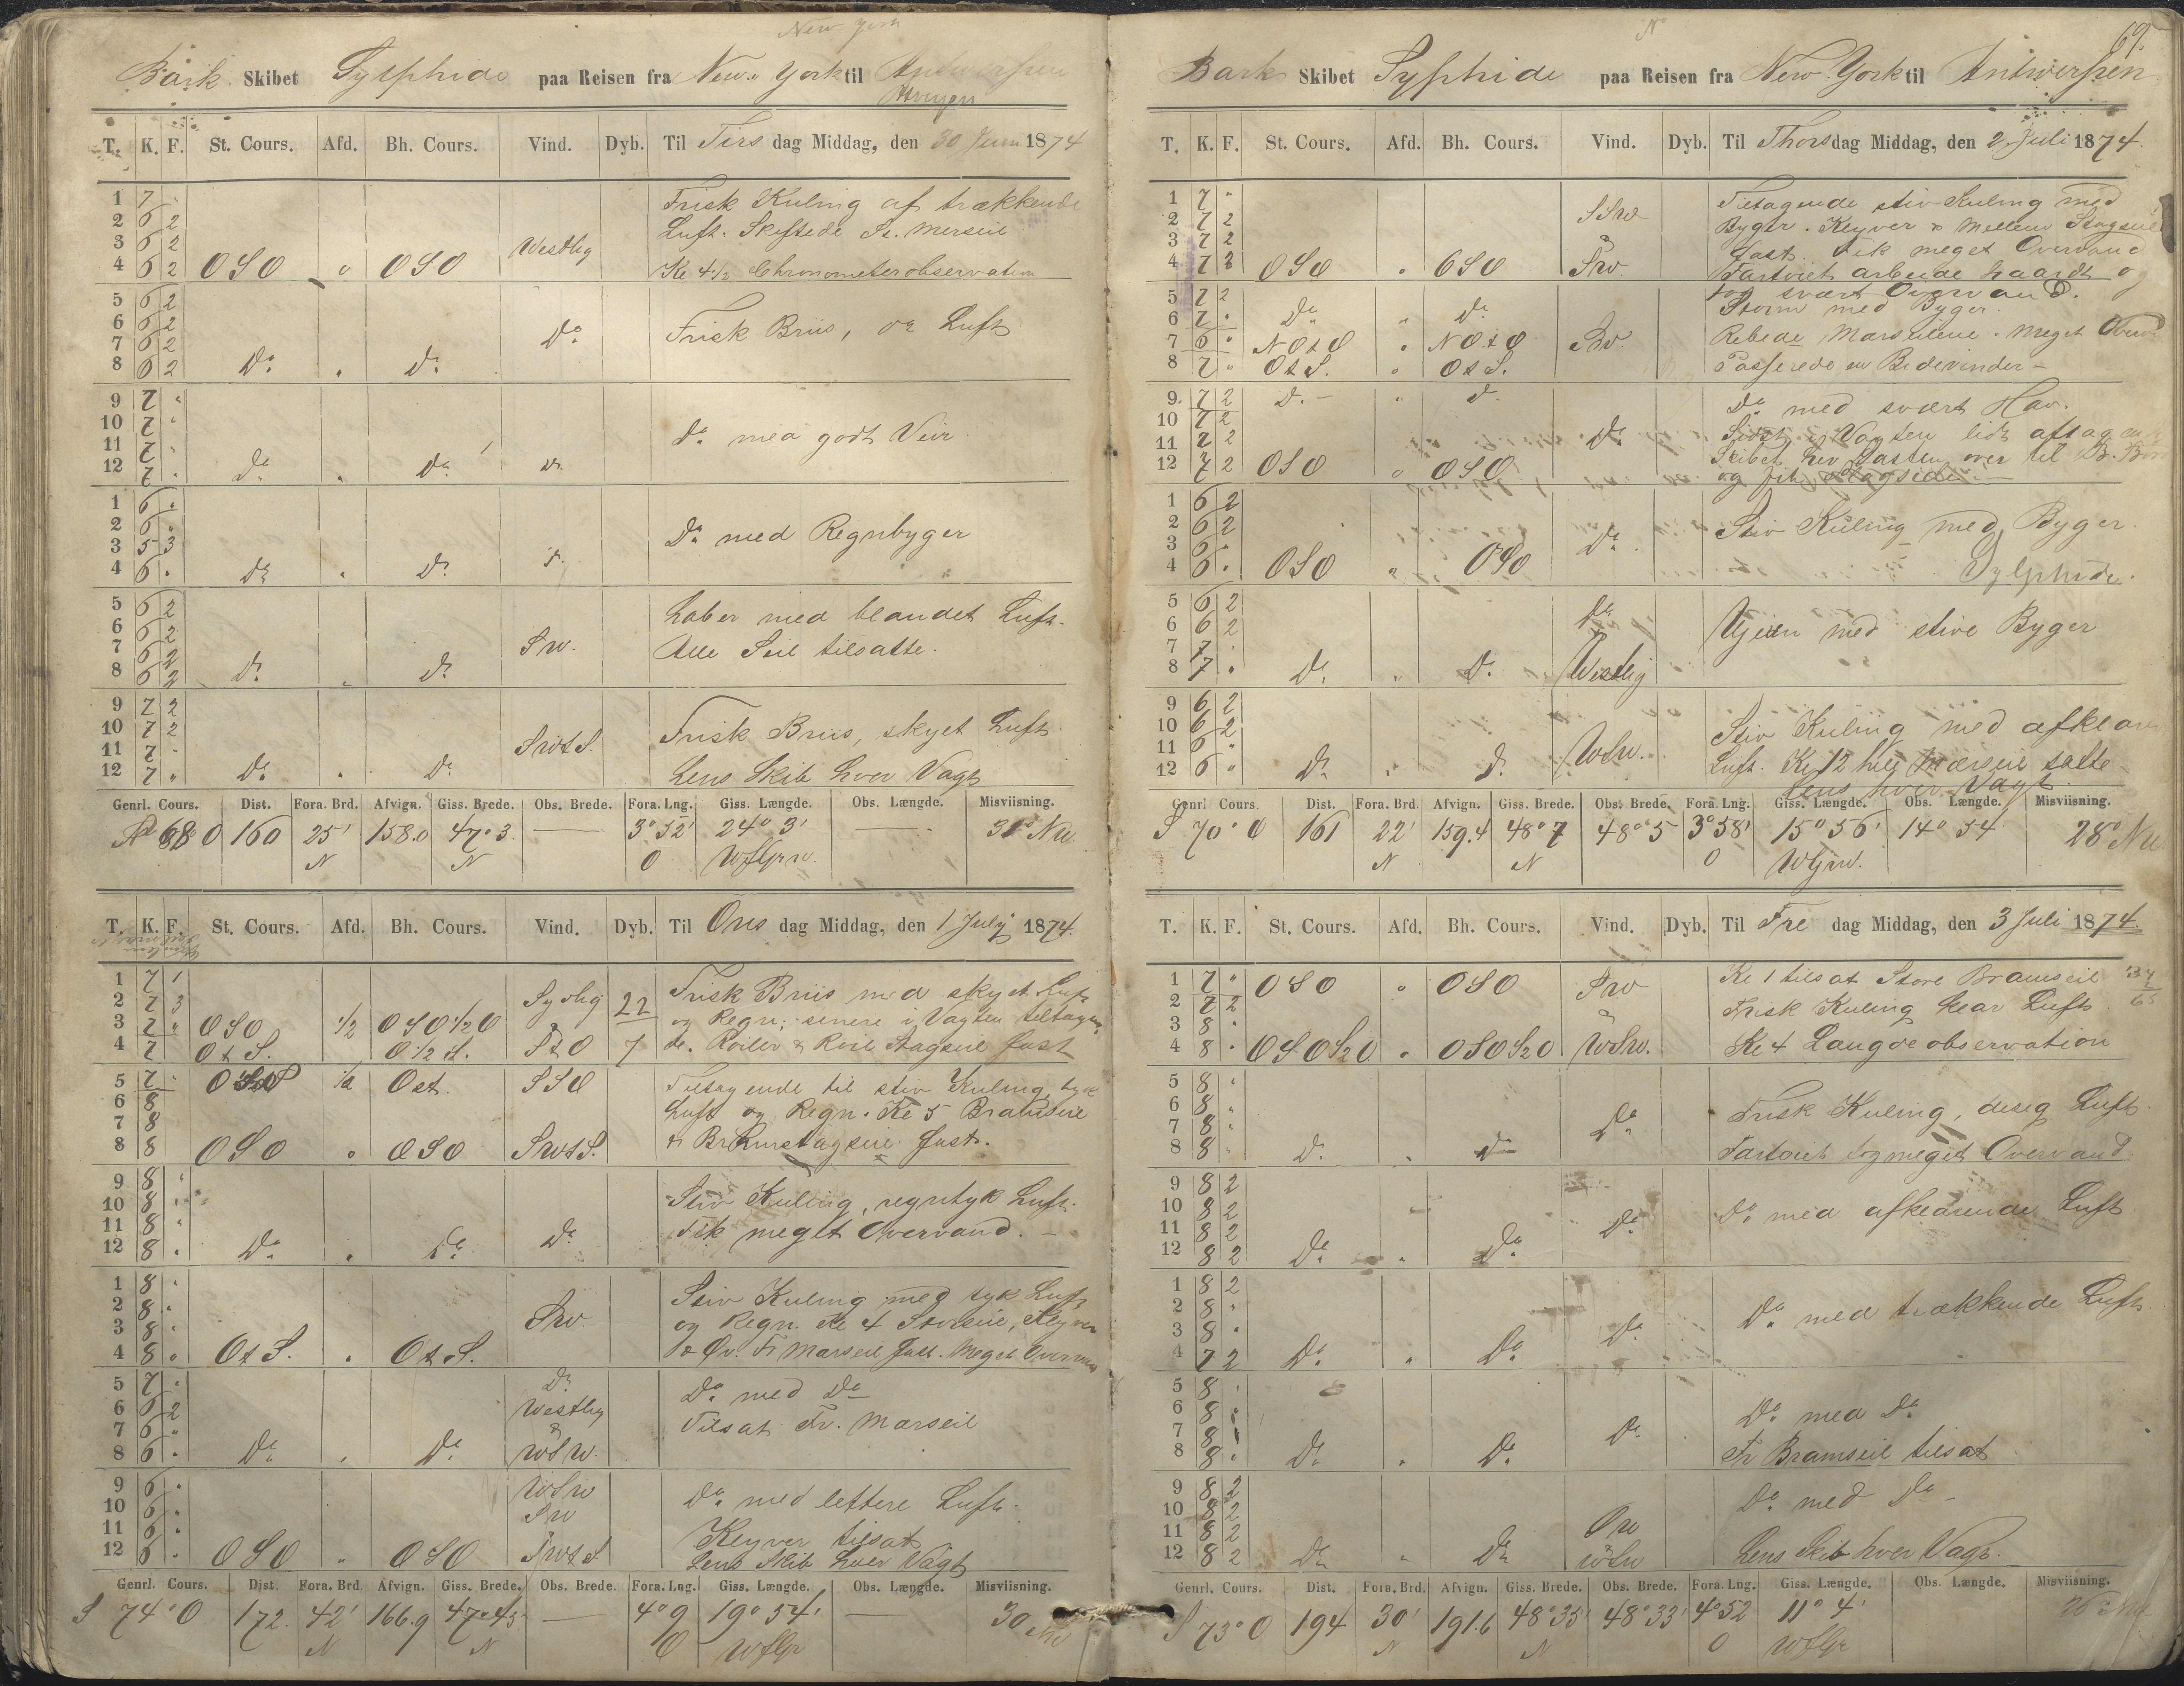 New York
Bark Skibet Sylphide paa Reisen fra New York til Antwerpen
T. K. F. St. Cours. Afd. Bh. Cours. Vind. Dyb. Til Tirs dag Middag, den 30 Juni 1874
1 7 Frisk Kuling af trækkende
2 6 2 Luft. Skiftede St. Merseil
3 6 2 Westlig
4 6 2 OSO " OSO Kl 4½ Chronometerobservation
5 6 2
6 6 2 Do Frisk Briis, do Luft
7 6 2
8 6 2 Do " Do
9 7 "
10 7 " Do med godt Veir
11 7 "
12 7 " Do " Do Do
1 6 "
2 6 " Do med Regnbyger
3 5 3
4 6 " Do " Do Do
5 6 2 Laber med blandet Luft
6 6 2
7 6 2 SW. Alle Seil tilsatte.
8 6 2 Do " Do
9 7 2
10 7 2 SWtS. Frisk Briis, skyet Luft
11 7 "
12 7 " Do " Do Lens Skib hver Vagt
Genrl. Cours. Dist. Fora. Brd. Afvign. Giss. Brede. Obs. Brede. Fora. Lng. Giss. Længde. Obs. Længde. Misviisning.
N 68 O 160 25' 158.0 47° 3 — 3° 52' 24° 3' — 30° NW
N N O WfGrw.
T. K. F. St. Cours. Afd. Bh. Cours. Vind. Dyb. Til Ons dag Middag, den 1 July 1874.
1 7 1 Sydlig 22 Frisk Briis med skyet Luft
2 7 3 og Regn; senere i Vagten tiltagen
3 7 " OSO ½ OSO½O
4 7 OtS. O½S. StO 7 de. Roiler & Roil Stagseil fast
5 7 " ½ Ost. SSO Tiltagende til stiv Kuling, tyk
6 8 Luft og Regn. Kl 5 Bramseil
7 8
8 8 OSO " OSO SWtS. & Bramstagseil fast.
9 8 "
10 8 " Stiv Kuling, regntyk Luft.
11 8 " Fik meget Overvand.
12 8 " Do " Do Do
1 8 " Stiv Kuling med tyk Luft
2 8 " SW og Regn. Kl 4 Storseil, Klyver
3 8 "
4 8 " OtS. " OtS. & Øv. Fr Marseil fast. Meget Overvand
5 7 " Do Do med Do
6 6 2 Westlig
7 6 " Tilsat Fr. Marseil
8 6 " Do " Do WSW.
9 6 " WSW
10 6 " SW Do med lettere Luft.
11 6 " Klyver tilsat
12 6 " OSO " OSO SWtS Lens Skib hver Vagt
Genrl. Cours. Dist. Fora. Brd. Afvign. Giss. Brede. Obs. Brede. Fora. Lng. Giss. Længde. Obs. Længde. Misviisning.
S 74° O 172. 42' 166.9 47° 45 — 4° 9 19° 54' — 30 NW
N N O WfGr
69.
Bark Skibet Sylphide paa Reisen fra New York til Antwerpen
T. K. F. St. Cours. Afd. Bh. Cours. Vind. Dyb. Til Thorsdag Middag, den 2 Juli 1874.
1 7 " Tiltagende stiv Kuling med
2 7 2 SSW Byger. Klyver & Mellem Stagseil
3 7 2 fast. Fik meget Overvand
4 7 2 OSO " OSO SW. Fartoiet arbeide haardt og
tog svært Overvand.
5 7 2 Storm med Byger.
6 7 " Do " Do
7 6 " NOtO " NOtO SW. Rebede Marseilene. Meget Overv
8 7 " OtS. " OtS. Passerede en Bidevinder -
9. 7 2 Do " Do Do med svært Hav.
10 7 2
11 7 2 Do Sidst i Vagten lidt aftagende
12 7 2 OSO " OSO Skibet hev Lasten over til Bb. Bord
og fik Slagside
1 6 2
2 6 2 Do Stiv Kuling med Byger.
3 6 "
4 6 " OSO " OSO Sylphide.
5 6 2 Do
6 6 2 Ujevn med stive Byger
7 7 "
8 7 " Do " Do Westlig
9 6 2
10 6 2 Stiv Kuling med afklar
11 6 " WSW.
12 6 " Do " Do Luft. Kl 12 hele Mærseil satte
Lens hver Vagt
Genrl Cours. Dist. Fora. Brd. Afvign. Giss. Brede. Obs. Brede. Fora. Lng. Giss. Længde. Obs. Længde. Misviisning.
S 70° O 161 22' 159.4 48° 7 48° 5 3° 58' 15° 56' 14° 54 28° NW
N N O WGrw.
T. K. F. St. Cours. Afd. Bh. Cours. Vind. Dyb. Til Fre dag Middag, den 3 Juli 1874.
1 7 " OSO " OSO SW Kl 1 tilsat Store Bramseil
2 7 2 Frisk Kuling klar Luft
3 8 "
4 8 " OSO½O " OSO½O WSW. Kl 4 Længdeobservation
5 8 "
6 8 " Do Frisk Kuling, diseg Luft
7 8 "
8 8 " Do " Do Fartoiet tog meget Overvand
9 8 2
10 8 2 Do Do med afklarende Luft
11 8 2
12 8 2 Do " Do
1 8 2
2 8 " Do Do med trækkende Luft
3 8 "
4 7 2 Do " Do
5 8 "
6 8 " Do med Do
7 8 Do
8 8 " Do " Do Fr Bramseil tilsat
9 8 2 Do med Do
10 8 2 SW
11 8 2
12 8 2 Do " Do WSW Lens Skib hver Vagt.
Genrl. Cours. Dist. Fora. Brd. Afvign. Giss. Brede. Obs. Brede. Fora. Lng. Giss. Længde. Obs. Længde. Misviisning.
S 73° O 194 30' 191.6 48° 35' 48° 33' 4° 52 11° 4'
N N O WfGr